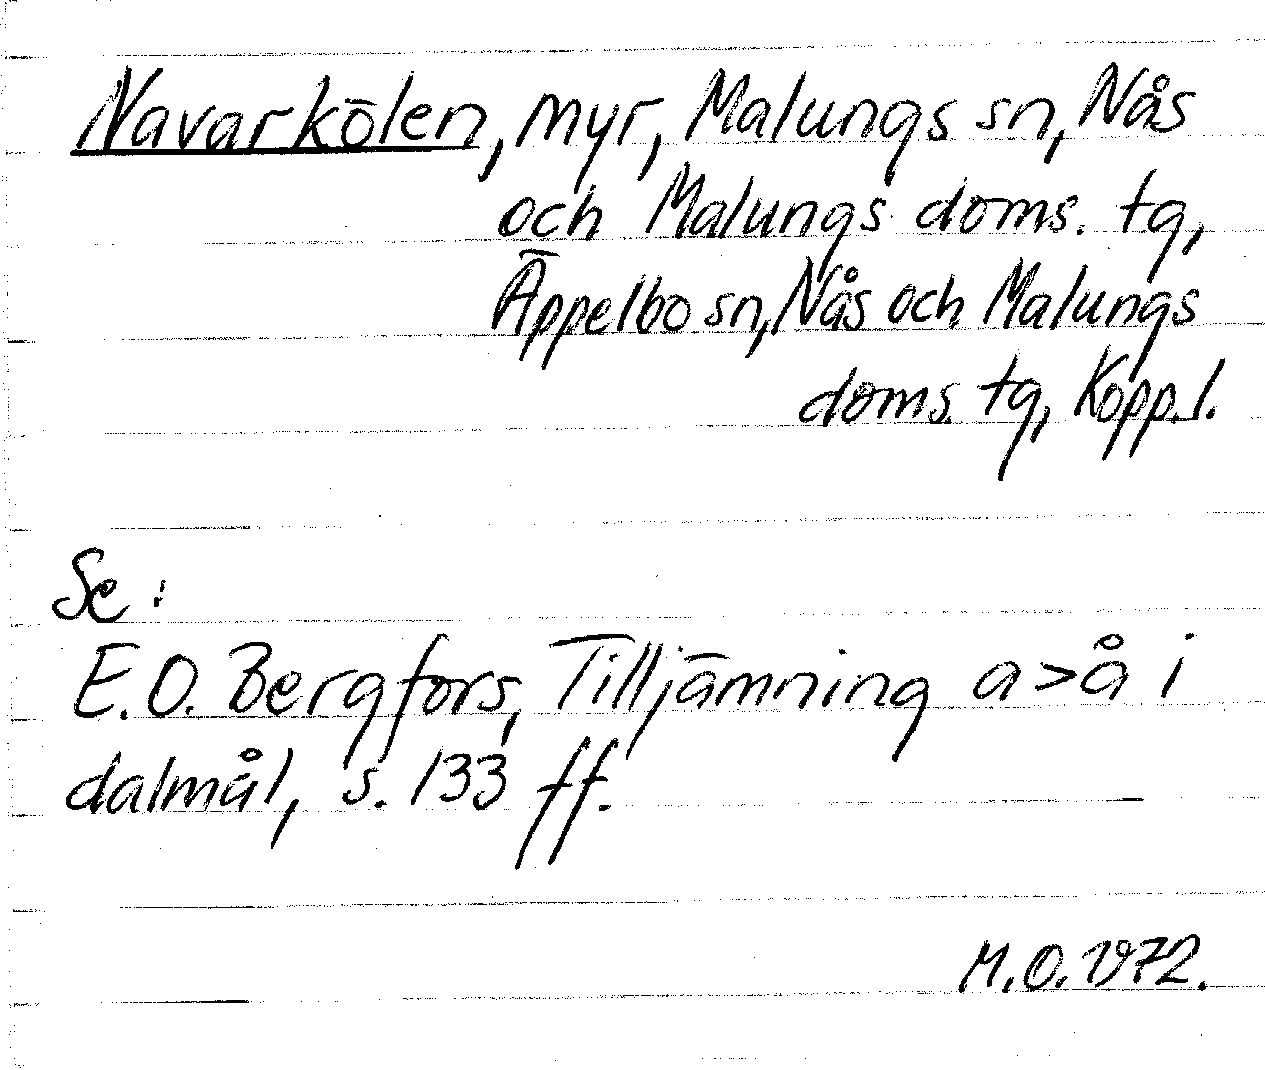 Navarkölen, myr, Malungs sn, Nås
och Malungs doms. tg,
Äppelbo sn, Nås och Malungs
doms. tg, Kopp. l.
Se:
E.O. Bergfors, Tilljämning a>å i
dalmål, s. 133 ff.
M.O. 1972.